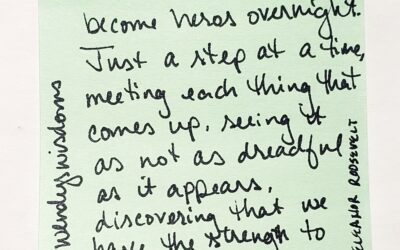 become heros overnight.
Just a step at a time,
meeting each thing that
comes up, seeing it
as not as dreadful
as it appears,
discovering that we
have the strength to
wendyswisdoms
ELEANOR ROOSEVELT